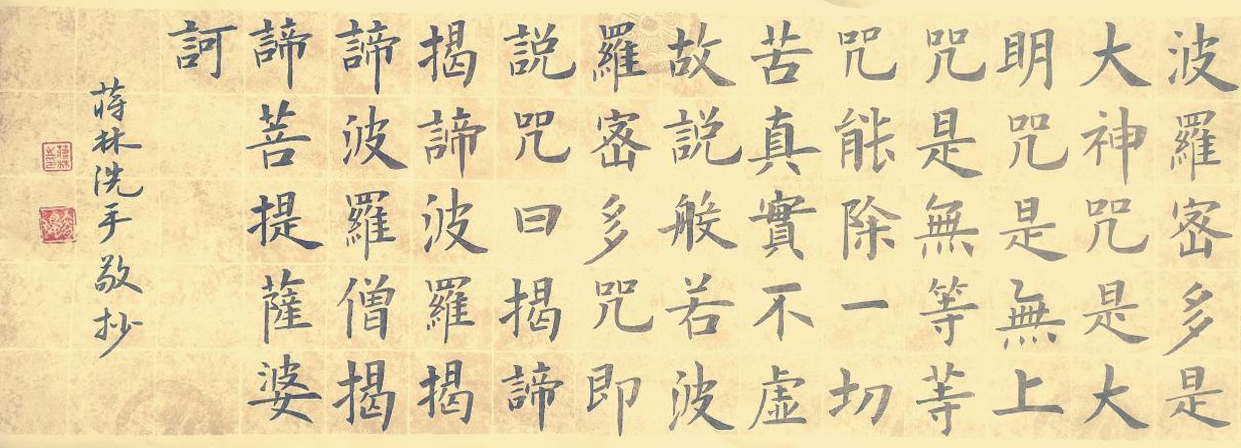 波羅密多是
大神咒是大
明咒是無上
咒是無等等
咒能除一切
苦真實不虛
故説般若波
羅密多咒即
説咒曰揭諦
揭諦波羅揭
諦波羅僧揭
諦菩提薩婆
訶
蒋林洗手敬抄